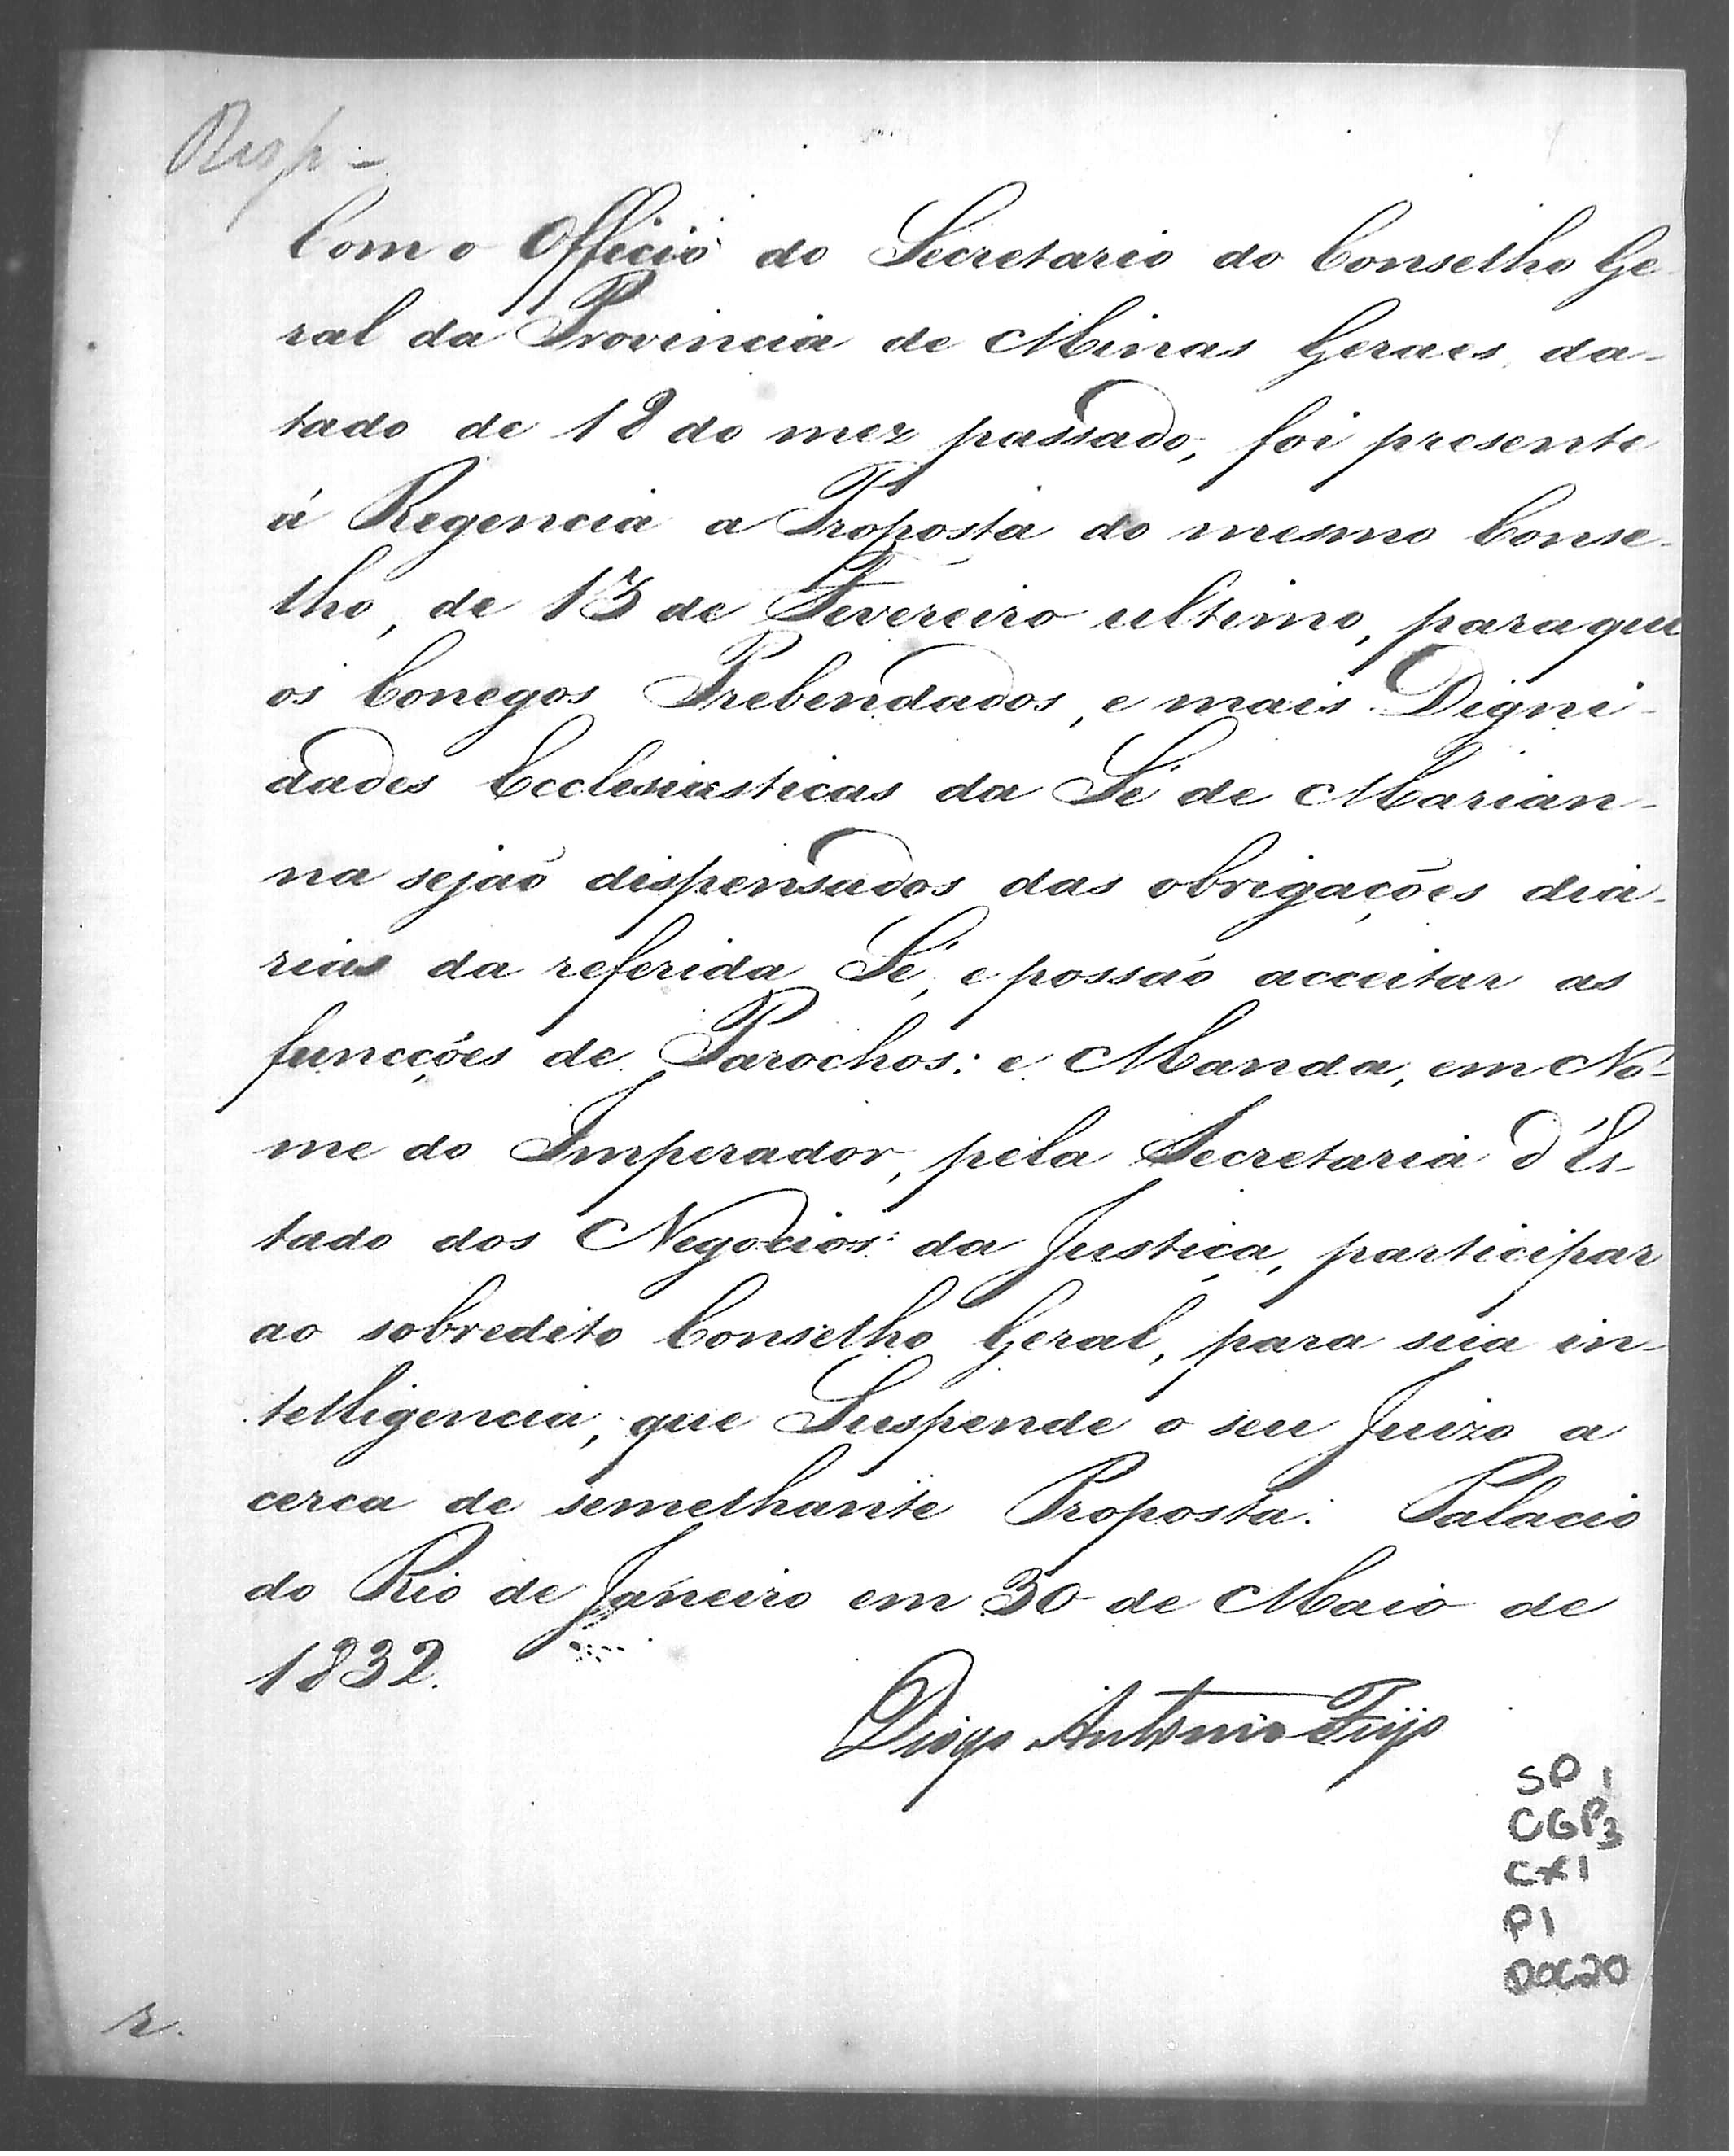 Resp -
Com o Officio do Secretario do Conselho Ge-
ral da Provincia de Minas Geraes, da-
tado de 18 do mez passado, foi presente
á Regencia a Proposta do mesmo Conse-
lho, de 13 de Fevereiro ultimo, para que
os Conegos Prebendados, e mais Digni-
dades Ecclesiasticas da Sé de Marian-
na sejaõ dispensados das obrigações dia-
rias da referida Sé, e possaõ acceitar as
funcções de Parochos: e Manda, em No-
me do Imperador, pela Secretaria d'Es-
tado dos Negocios da Justiça, participar
ao sobredito Conselho Geral, para sua in-
telligencia, que Suspende o seu Juizo a
cerca de semelhante Proposta. Palacio
do Rio de Janeiro em 30 de Maio de
1832.
Diogo Antonio Feijo
SP 1
CGP3
CX1
P1
DOC20
r.